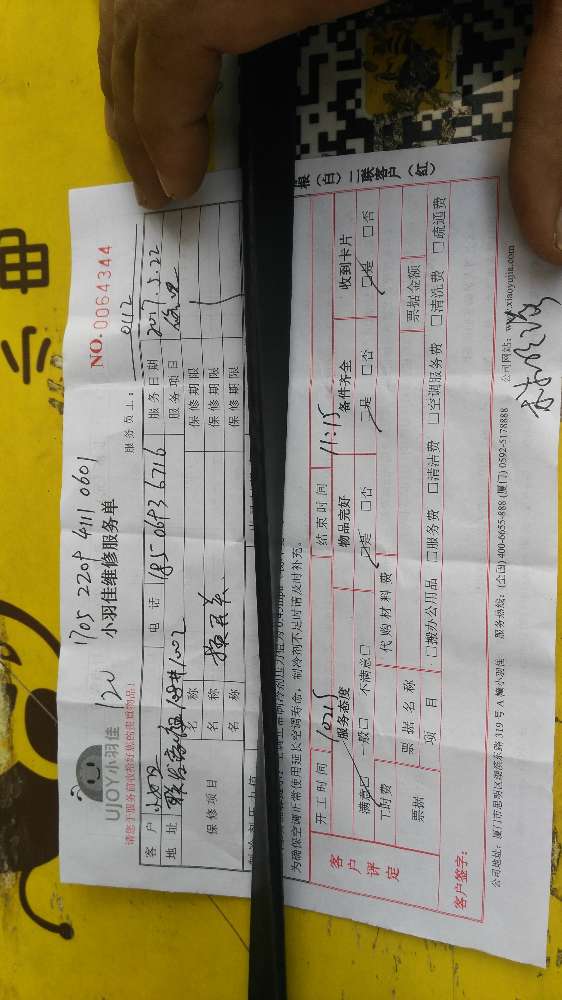 1705 2209 4111 0601
120
UJOY小羽佳
小羽佳维修服务单
NO.0064344
请您于服务前收拾好您的贵重物品！
服务员工： 0112
客户
电话 185 0693 6716
服务日期 2017.5.22
地址
服务项目
保修项目
名称 换开关
保修期限
名称
保修期限
名称
保修期限
根（白）二联客户（红）
为确保空调正常使用延长空调寿命，制冷剂不足时请及时补充。
客户评定
开工时间 10:15
结束时间 11:15
服务态度
物品完好
备件齐全
收到卡片
满意□ 一般□ 不满意□
□是 □否
□是 □否
□是 □否
工时费
代购材料费
票据
票据名称
票据金额
项目
□搬办公用品 □服务费 □清洁费 □空调服务费 □清洗费 □疏通费
客户签字：
公司地址：厦门市思明区莲前东路 319 号 A 幢小羽佳 服务热线：(全国) 400-6655-888 (厦门) 0592-5178888 公司网站：www.xiaoyujia.com